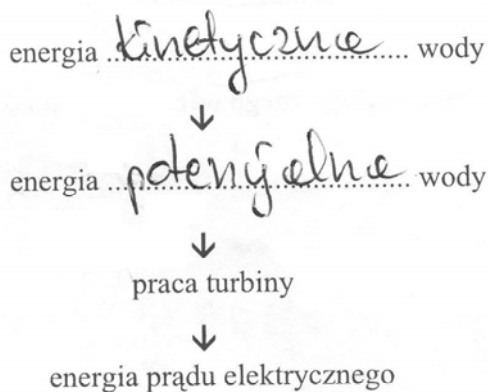 energia kinetyczna wody
↓
energia potencjalna wody
↓
praca turbiny
↓
energia prądu elektrycznego